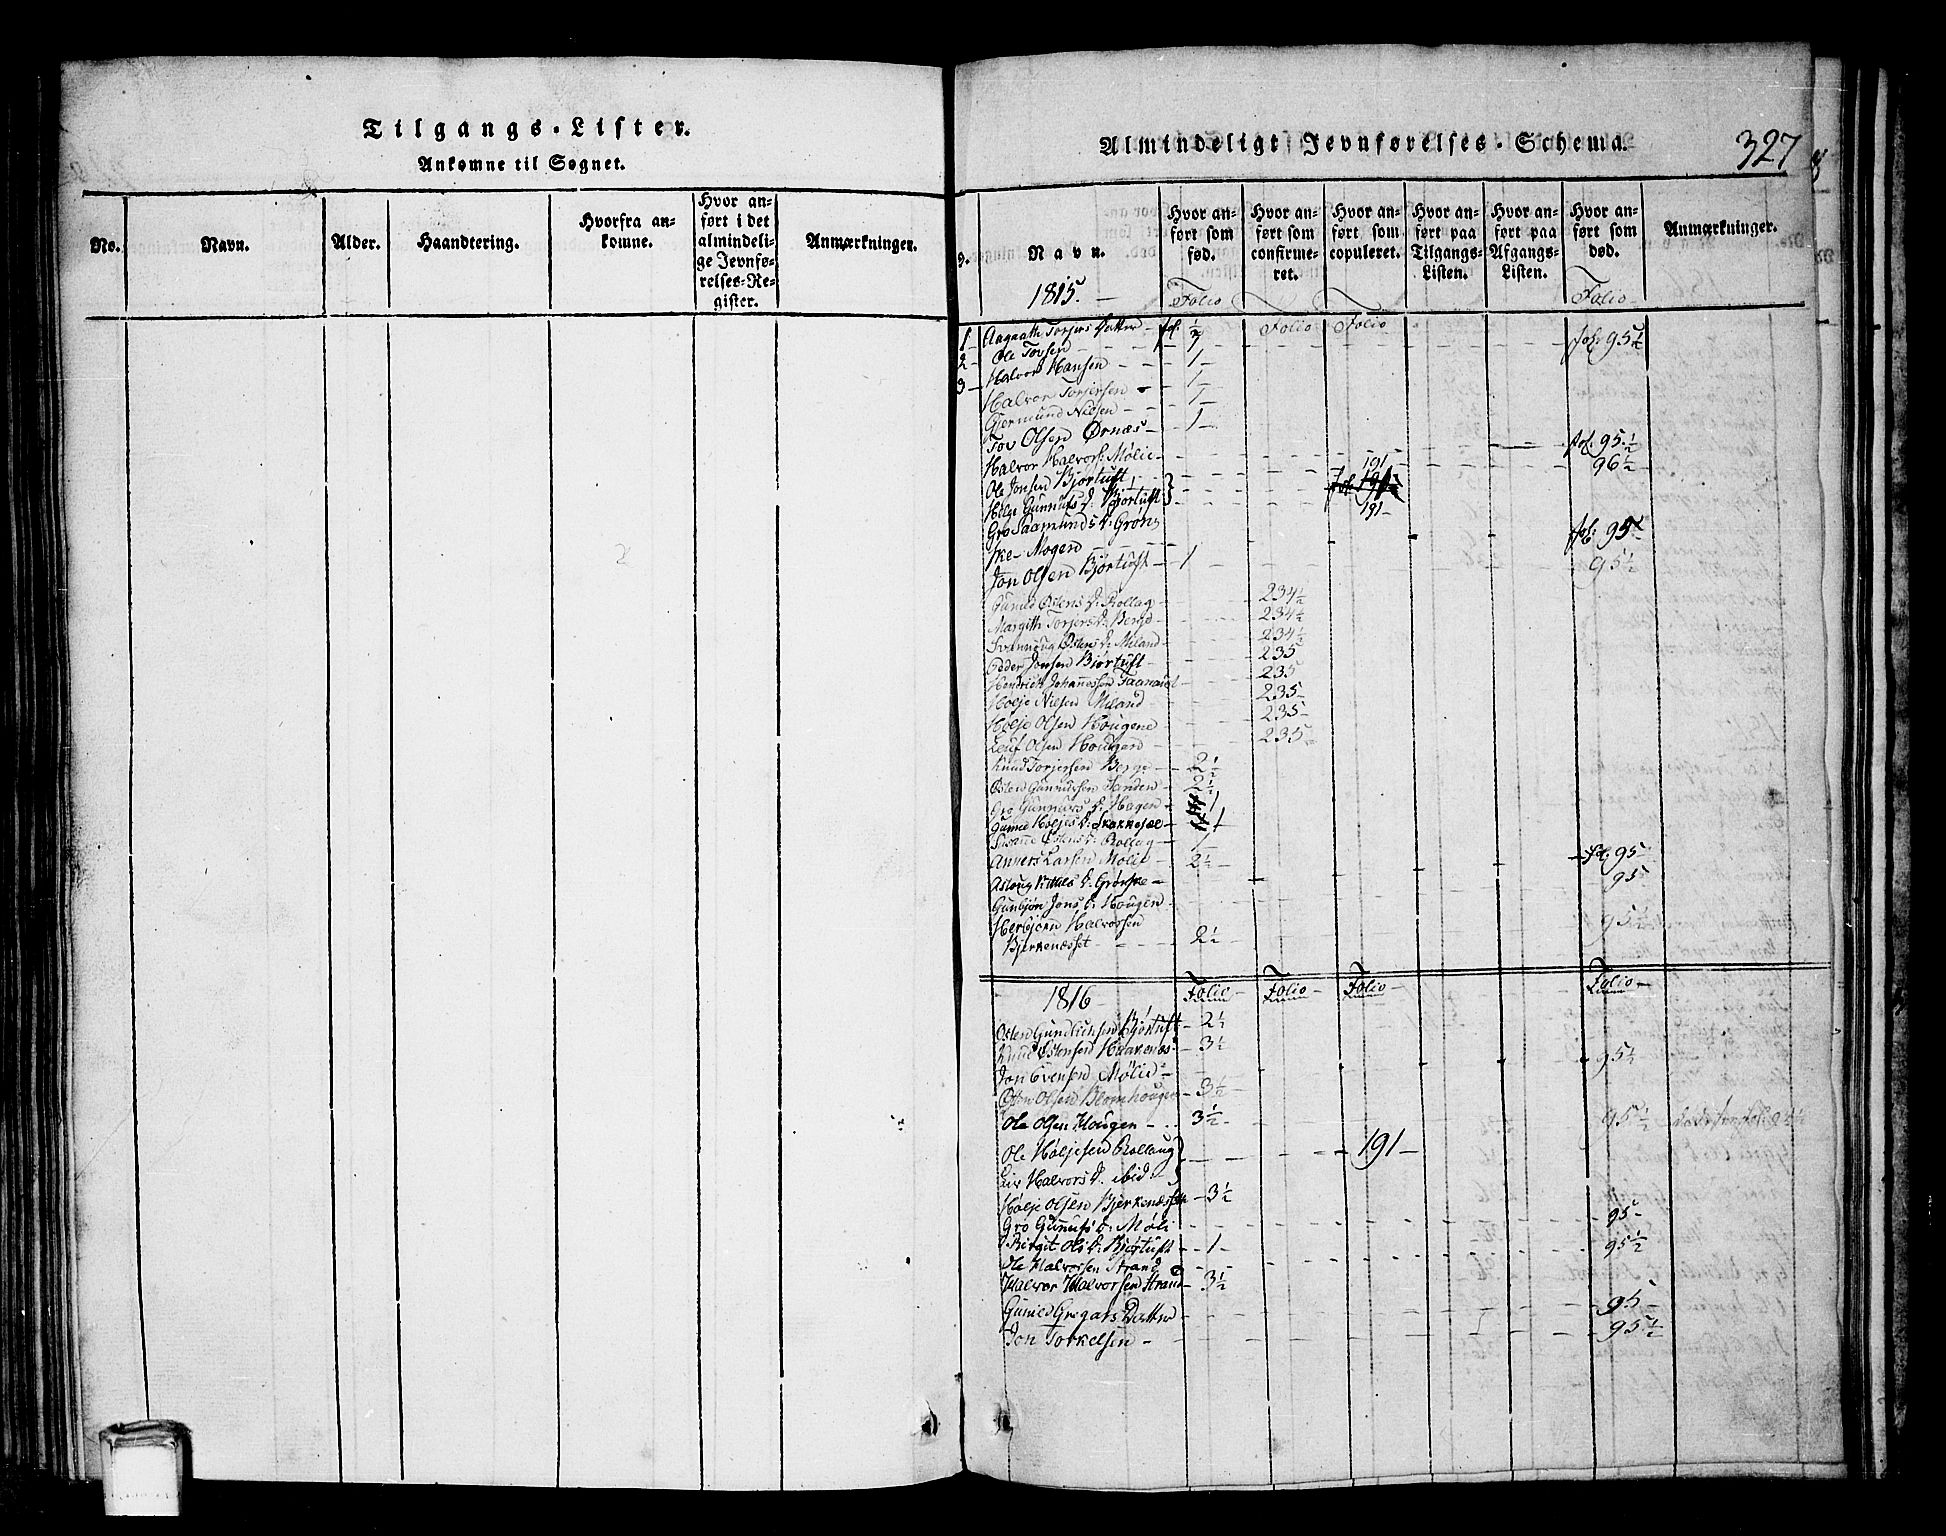 Tilgangs-Lister.
Ankomne til Sognet.
No.
Navn.
Alder.
Haandtering.
Hvorfra an-
komne.
Hvor an-
ført i det
almindeli-
ge Jevnfø-
relses-Re-
gister.
Anmærkninger.
Almindeligt Jevnførelses-Schema.
327
Navn.
Hvor an-
ført som
fød.
Hvor an-
ført som
confirme-
ret.
Hvor an-
ført som
copuleret.
Hvor an-
ført paa
Tilgangs-
Listen.
Hvor an-
ført paa
Afgangs-
Listen.
Hvor an-
ført som
død.
Anmærkninger.
1815. Folio Folio Folio Folio
1 Aagaath Torjers Datter fol. 1/2
2 Ole Tovsen 7 fol. 95 1/2
3 Halvor Hansen 1
Halvor Torjersen 1
Gjermund Nilsen 1
Tov Olsen Ørnæs 1
Halvor Halvors: Mølie fol. 95 1/2
Ole Jonsen Bjørtuft 191 96 1/2
Helge Gunnufs D. Bjørtuft
Gro Saamunds D: Grøng 191
ske Mogen fol. 95
Jon Olsen Bjørtuft 1 95 1/2
Guned Østens D: Rollag 234 1/2
Margith Torjers D: Berge 234 1/2
Svannoug Østens D: Miland 234 1/2
Peder Jonsen Bjørtuft 235
Hendrich Johannessen 235
Holje Nielsen Miland 235
Holje Olsen Hougene 235
Leuf Olsen Hougen 235
Knud Torjersen Berge 2 1/2
Østen Gunnufsen Sanden 2 1/2
Gro Gunnufs D: Hagen 1
Guned Holjes D: 1
Østens D: Rollag 1
Anvers Larsen Mølie 2 1/2 fol. 95
Asloug Kittils D: Grønske 95
Gunbjør Jons D: Hougen
Herbjørn Halvorsen 95 1/2
Bjerkenæsset 2 1/2
1816 Folio Folio Folio Folio
Østen Gundichsen Bjørtuft 2 1/2
Knud Østensen Haakenæs 3 1/2
Jon Evensen Mølie 95 1/2
Østen Olsen Blomhougen 3 1/2
Ole Olsen Hougen 3 1/2 95 1/2
Ole Høljesen Rollaug 191
Liv Halvors D. ibid:
Hølje Olsen Bjerkenæsset 3 1/2
Gro Gunnufs D: Møli 95
Birgit Ols D: Bjørtuft 1 95 1/2
Ole Halvorsen Strand
Halvor Halvorsen Strand 3 1/2
Guned Gregars Datter 95
Jon Torkelsen 95 1/2